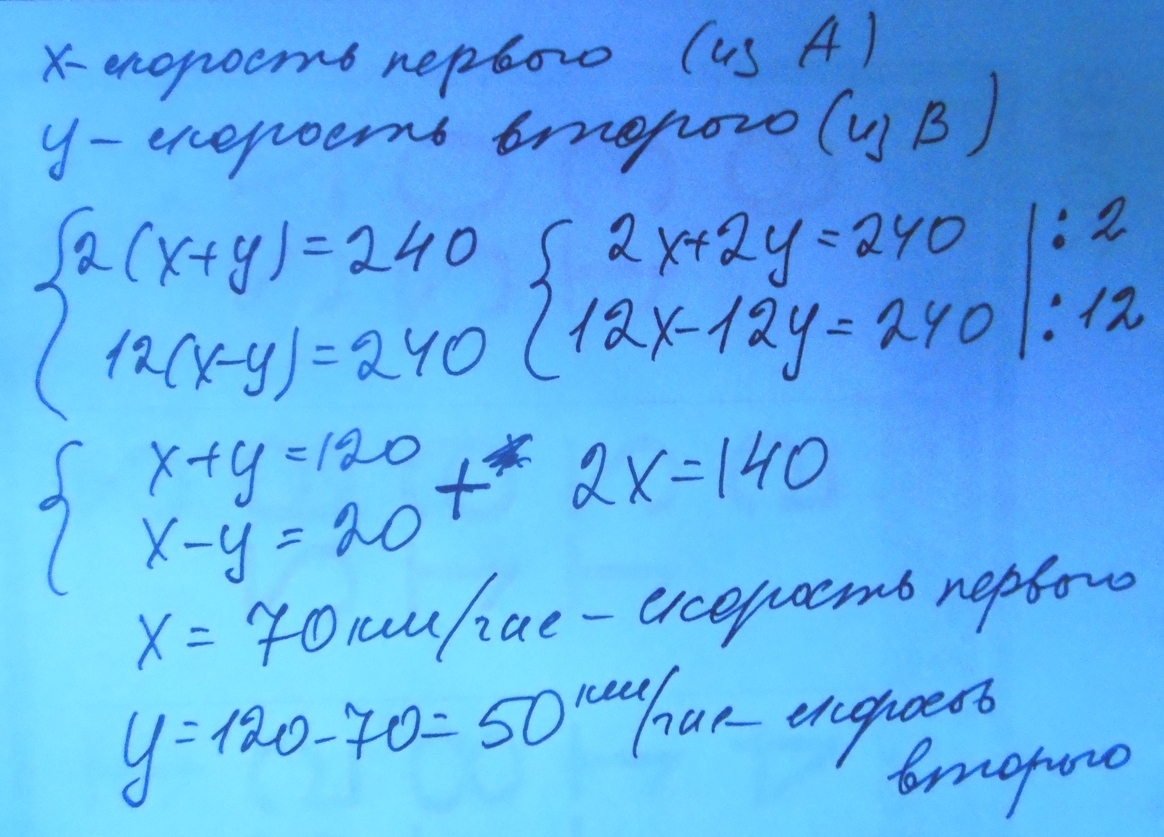 x - скорость первого (из A)
y - скорость второго (из B)
{ 2(x+y)=240 { 2x+2y=240 | : 2
12(x-y)=240 12x-12y=240 | : 12
{ x+y=120 + 2x=140
x-y=20
x = 70 км/час - скорость первого
y=120-70=50 км/час - скорость
второго